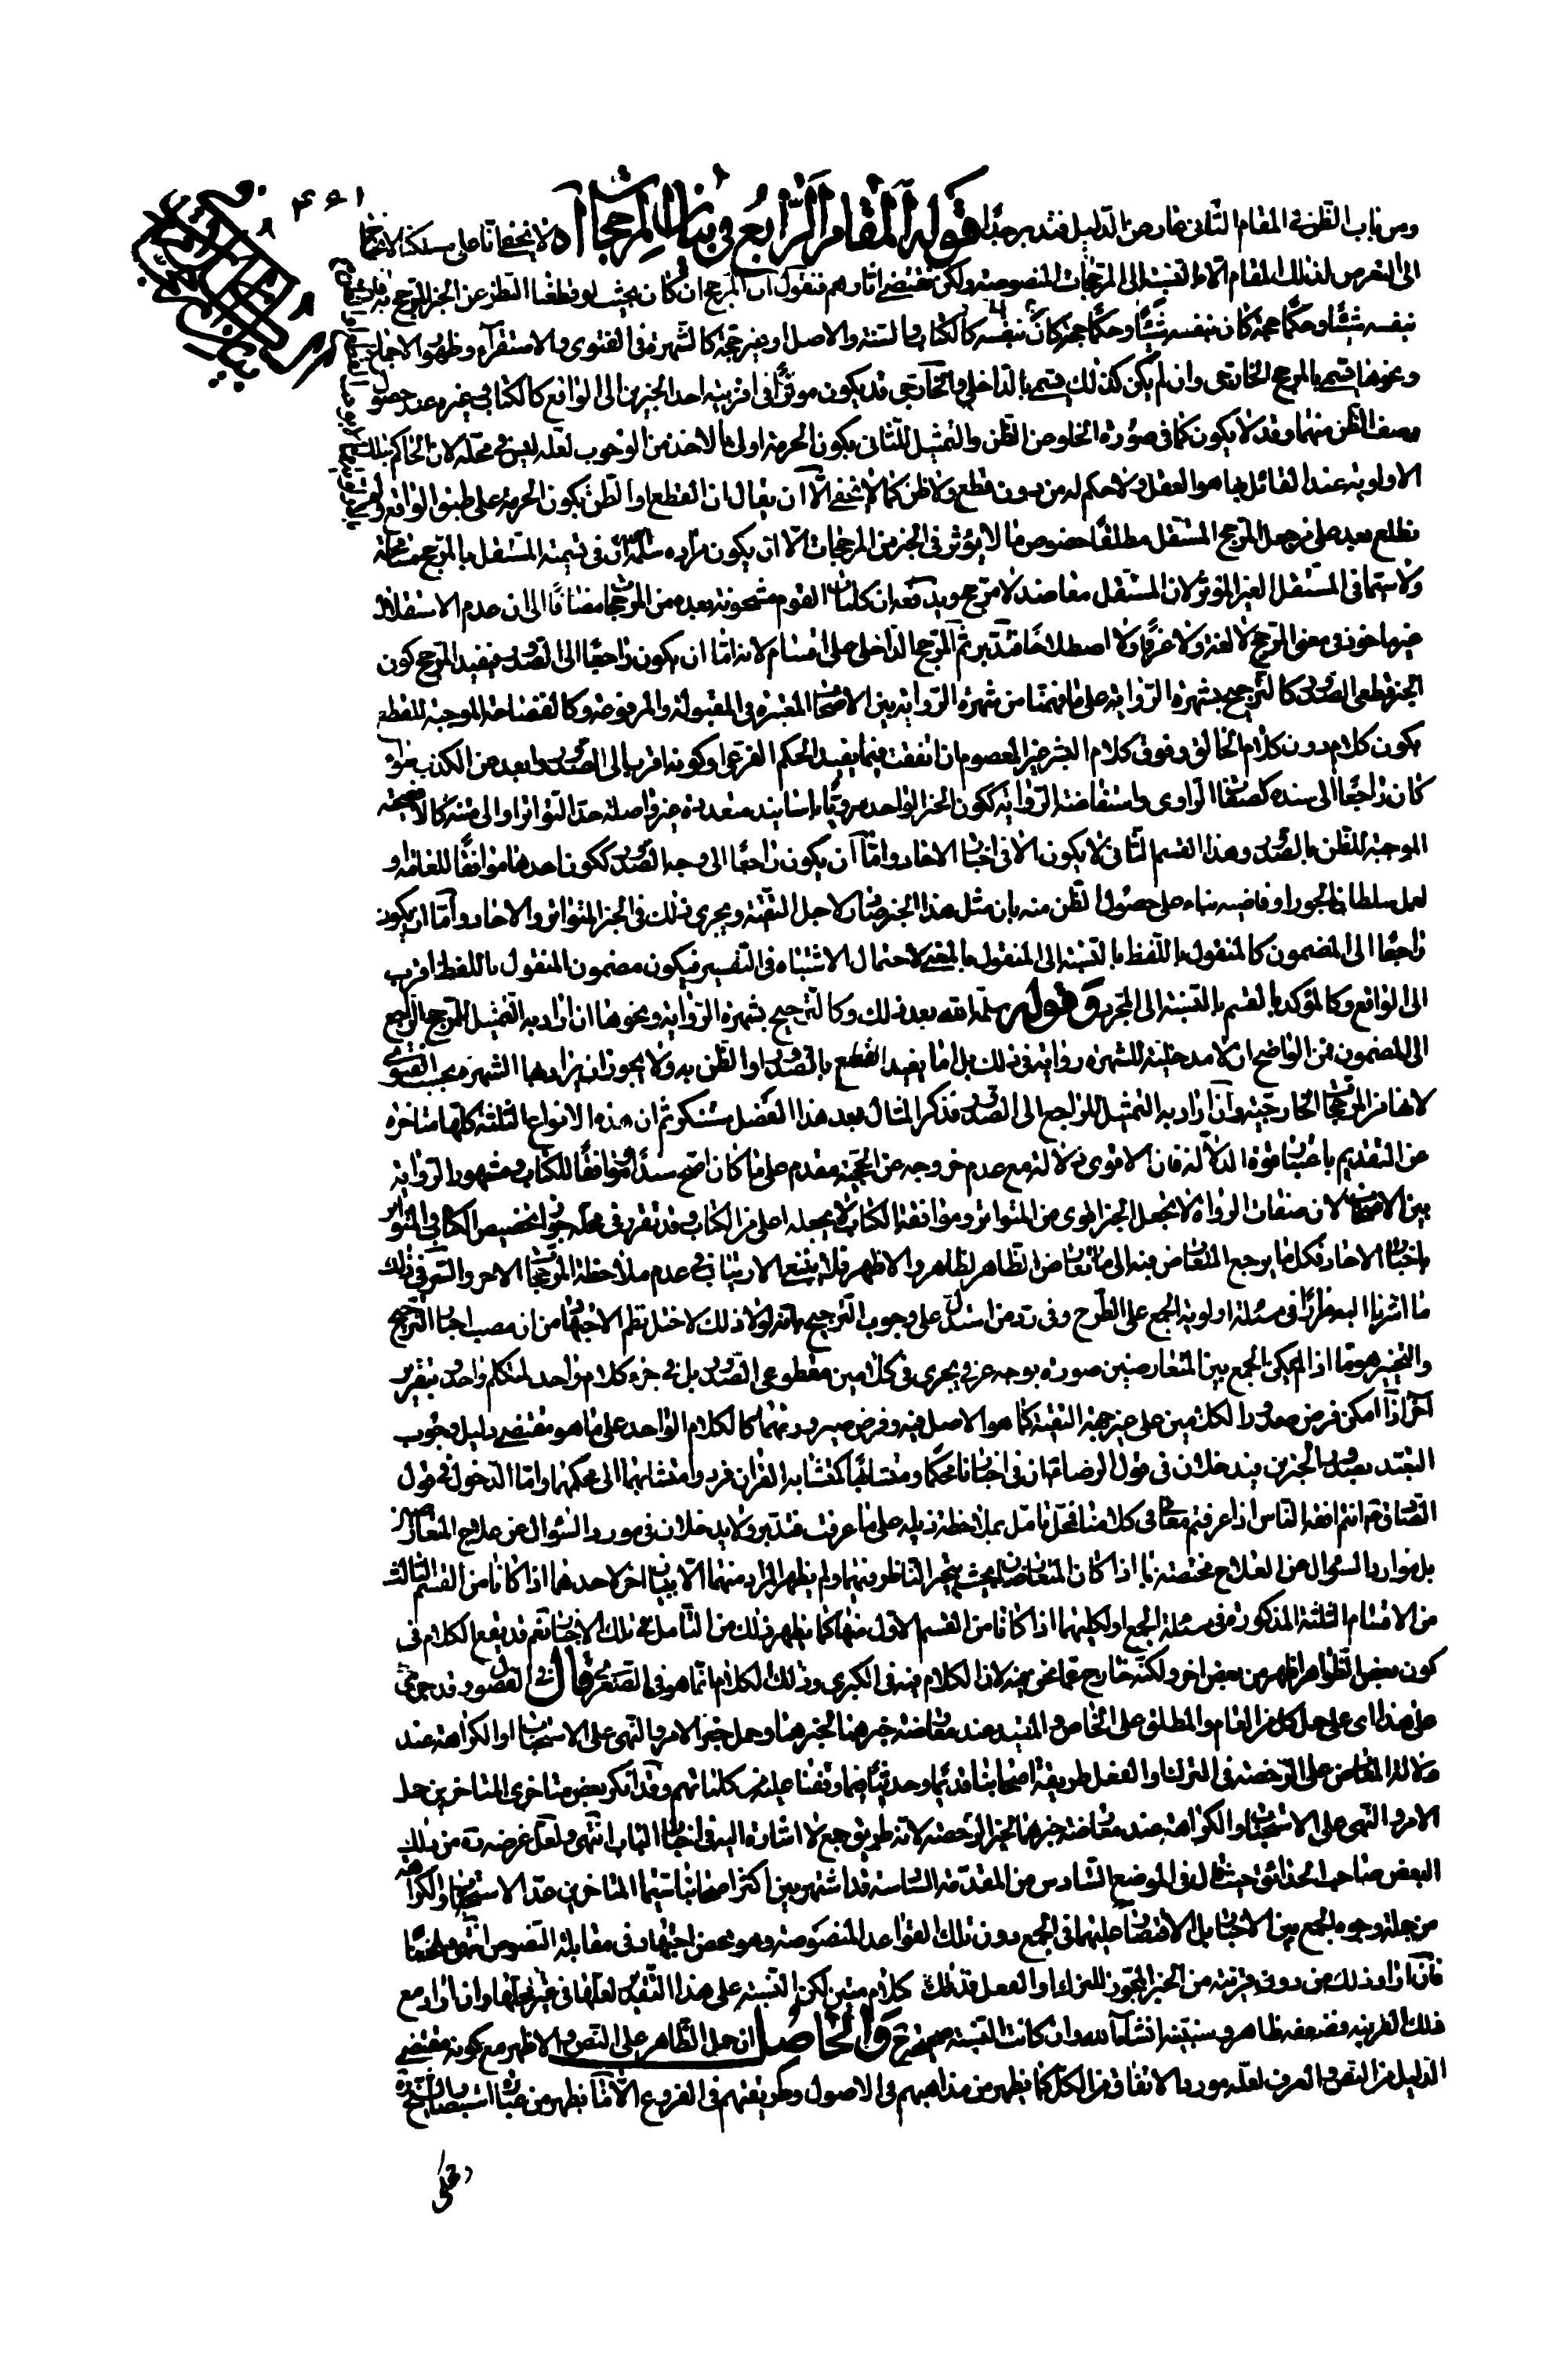 ومن باب الظن في المقام الثاني صار من الدليل فتدبر جدا قوله المقام الرابع في بيان المرجحات آه لا يخفى انا على مسلكنا لا نحتاج
الى التعرض لذلك المقام الا بالنسبة الى المرجحات المنصوصة ولكن نقتضي آثارهم فنقول ان المرجح ان كان بحيث لو قطعنا النظر عن الخبر المرجح به
بنفسه شيئا وحكما حجة كان بنفسه كالكتاب والسنة والاصل او غير حجة كالشهرة في الفتوى والاستقراء وظهور الاجماع
ونحوها قسم بالمرجح الخارجي وان لم يكن كذلك يسمى بالداخلي والخارجي قد يكون مؤثرا في اقربية احد الخبرين الى الواقع كالكتاب وغيره عند حصول
وصف الظن منهما وقد لا يكون كما في صورة الخلو من الظن والتمثيل للثاني بكون الحرمة اولى بالاخذ من الوجوب لعله ليس في محله لان الحاكم بتلك
الاولوية عند القائل بها هو العقل ولا حكم له من دون قطع ولا ظن كما لا يخفى الا ان يقال ان القطع او الظن بكون الحرمة على طبق الواقع
نطلع بعد على من جعل المرجح المستقل مطلقا خصوص ما لا يؤثر في الخبر من المرجحات الا ان يكون مراده سلمه ان في تسمية المستقل بالمرجح مسامحة
ولا سيما في المستقل الغير المؤثر لان المستقل معاضد لا مرجح ويدفعه ان كلمات القوم مشحونة بعده من المرجحات مضافا الى ان عدم الاستقلال
غير مأخوذ في معنى المرجح لا لغة ولا عرفا ولا اصطلاحا فتدبر ثم المرجح الداخلي على اقسام لانه اما ان يكون راجعا الى الصدور فيفيد المرجح كون
الخبر قطعي الصدور كالترجيح بشهرة الرواية على ما فهمنا من شهرة الرواية بين الاصحاب المعتبرة في المقبولة والمرفوعة وكالفصاحة الموجبة للقطع
بكون كلام دون كلام الخالق وفوق كلام البشر غير المعصوم ان اتفقت فيما يفيد الحكم الفرعي او كونه اقرب الى الصدور وابعد من الكذب سواء
كان راجعا الى سنده كصفات الراوي واستفاضة الرواية ككون الخبر الواحد مرويا باسانيد متعددة غير واصلة حد التواتر او الى متنه كالافصحية
الموجبة للظن بالصدور وهذا القسم الثاني لا يكون الا في اخبار الاحاد واما ان يكون راجعا الى وجه الصدور ككون احدهما موافقا للعامة او
لعمل سلطان الجور او قاضيه بناء على حصول الظن منه بان مثل هذا الخبر صدر لاجل التقية ويجري ذلك في الخبر المتواتر والاحاد واما ان يكون
راجعا الى المضمون كالمنقول باللفظ بالنسبة الى المنقول بالمعنى لاحتمال الاشتباه في التفسير فيكون مضمون المنقول باللفظ اقرب
الى الواقع وكالمؤكد بالقسم بالنسبة الى المجرد وقوله سلمه الله بعد ذلك وكالترجيح بشهرة الرواية ونحوها ان اراد به التمثيل للمرجح الراجع
الى المضمون فمن الواضح ان لا مدخلية للشهرة رواية في ذلك بل اما يفيد القطع بالصدور او الظن به ولا يجوز ان يراد بها الشهرة بحسب الفتوى
لانها من المرجحات الخارجية وان اراد به التمثيل للراجع الى الصدور فذكر المثال بعد هذا الفصل مستنكر ثم ان هذه الانواع الثلثة كلها متاخرة
عن التقديم باعتبار قوة الدلالة فان الاقوى دلالة مع عدم خروجه عن الحجية مقدم على ما كان اصح سندا وموافقا للكتاب ومشهور الرواية
بين الاصحاب لان صفات الرواة لا تجعل الخبر اقوى من المتواتر وموافقة الكتاب لا يجعله اعلى من الكتاب وقد تقرر في محله جواز تخصيص الكتاب والمتواتر
باخبار الاحاد فكل ما يرجع التعارض فيه الى تعارض الظاهر لظاهر والاظهر فلا ينبغي الارتياب في عدم ملاحظة المرجحات الاخر والسر في ذلك
ما اشرنا اليه مرارا في مسئلة اولوية الجمع على الطرح وفي رد من استدل على وجوب الترجيح بانه لولا ذلك لاختل نظم الاجتهاد من ان مصب اخبار الترجيح
والتخيير هو ما اذا لم يمكن الجمع بين المتعارضين صورة بوجه عرفي يجري في كلامين مقطوعي الصدور بل في جزء كلام واحد لمتكلم واحد وبتقرير
آخر اذا امكن فرض صدور الكلامين على غير جهة التقية كما هو الاصل فيه وفرض صيرورتهما كالكلام الواحد على ما هو مقتضى دليل وجوب
التعبد بصدور الخبرين فيدخلان في قول الرضا ان في اخبارنا محكما ومتشابها كمتشابه القران فردوا متشابهها الى محكمها واما الدخول في قول
الصادق انتم افقه الناس اذا عرفتم معاني كلامنا فمحل تامل بملاحظة ذيله على ما عرفت فتدبر ولا يدخلان في مورد السؤال عن علاج المتعارضين
بل موارد السؤال عن العلاج مختصة بما اذا كان المتعارضان بحيث يتحير الناظر فيهما ولم يظهر المراد منهما الا ببيان اخر لاحدهما اذا كانا من القسم الثالث
من الاقسام الثلثة المذكورة في مسئلة الجمع او لكليهما اذا كانا من القسم الاول منها كما يظهر ذلك من التامل في تلك الاخبار نعم قد يقع الكلام في
كون بعض الظواهر اظهر من بعض اخر ولكنه خارج عما نحن فيه لان الكلام فيه في الكبرى وذلك الكلام انما هو في الصغرى قال في القصور وقد جرى
على هذا اي على حمل كل من العام والمطلق على الخاص والمقيد عند معارضة خبرهما لخبرهما وحمل خبر الامر والنهي على الاستحباب او الكراهة عند
دلالة المعارض على الرخصة في الترك او الفعل طريقة اصحابنا قديما وحديثا فيما وقفنا عليه من كلماتهم وقد انكر بعض متاخري المتاخرين حمل
الامر والنهي على الاستحباب والكراهة عند معارضة خبرهما لخبر الرخصة لانه طريق جمع لا اشارة اليه في اخبار الباب انتهى ولعل غرضه ره من ذلك
البعض صاحب الحدائق حيث قال في الموضع السادس من المقدمة السادسة قد اشتهر بين اكثر اصحابنا سيما المتاخرين عد الاستحباب والكراهة
من جملة وجوه الجمع بين الاخبار بل الاقتصار عليهما في الجمع دون تلك القواعد المنصوصة وهو محض اجتهاد في مقابلة النصوص انتهى ملخصا
فان اراد ذلك من دون قرينة من الخبر المجوز للترك او الفعل فذلك كلام متين لكن النسبة على هذا التقدير لعلها في غير محلها وان اراد مع
ذلك القرينة فضعفه ظاهر وسنبينه انشاء الله وان كانت النسبة صحيحة والحاصل ان حمل الظاهر على النص والاظهر مع كونه مقتضى
الدليل من النص والعرف لعله مورد الاتفاق من الكل كما يظهر من مذاهبهم في الاصول وطريقتهم في الفروع الا ما يظهر من عبارة استبصار الشيخ ره